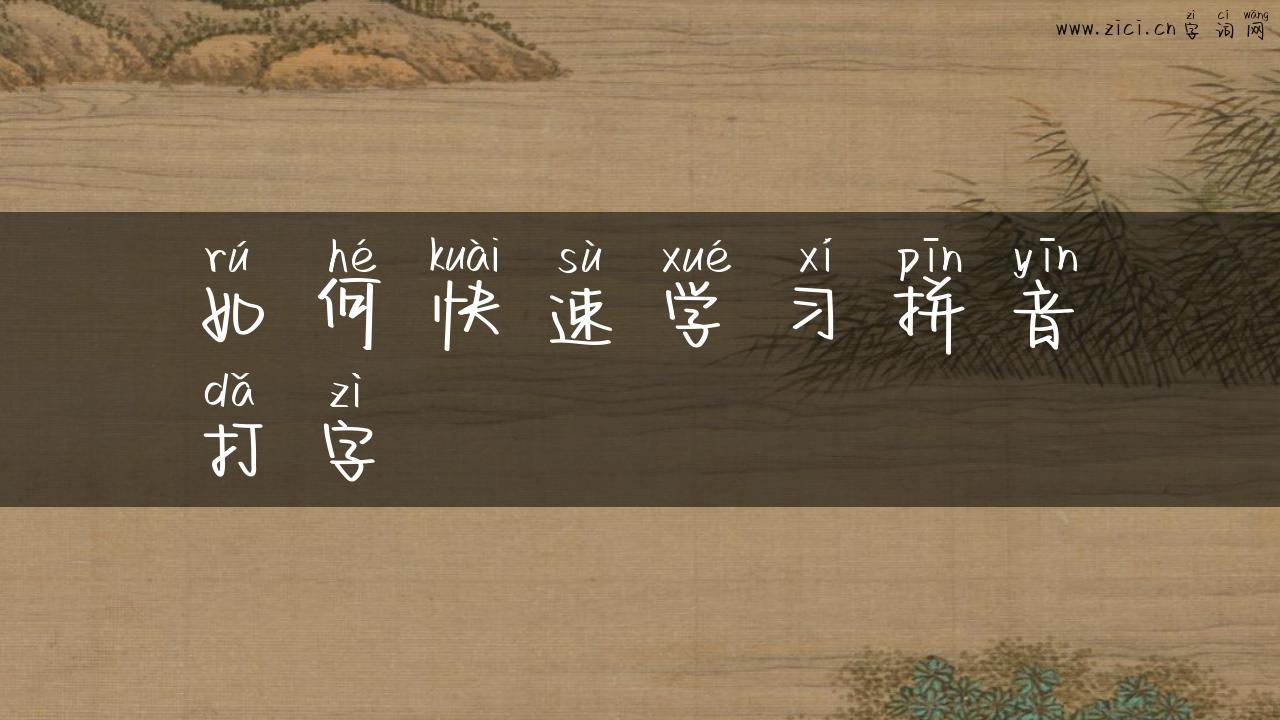 zì cí wǎng
www.zici.cn 字词网
rú hé kuài sù xué xí pīn yīn
如何快速学习拼音
dǎ zì
打字